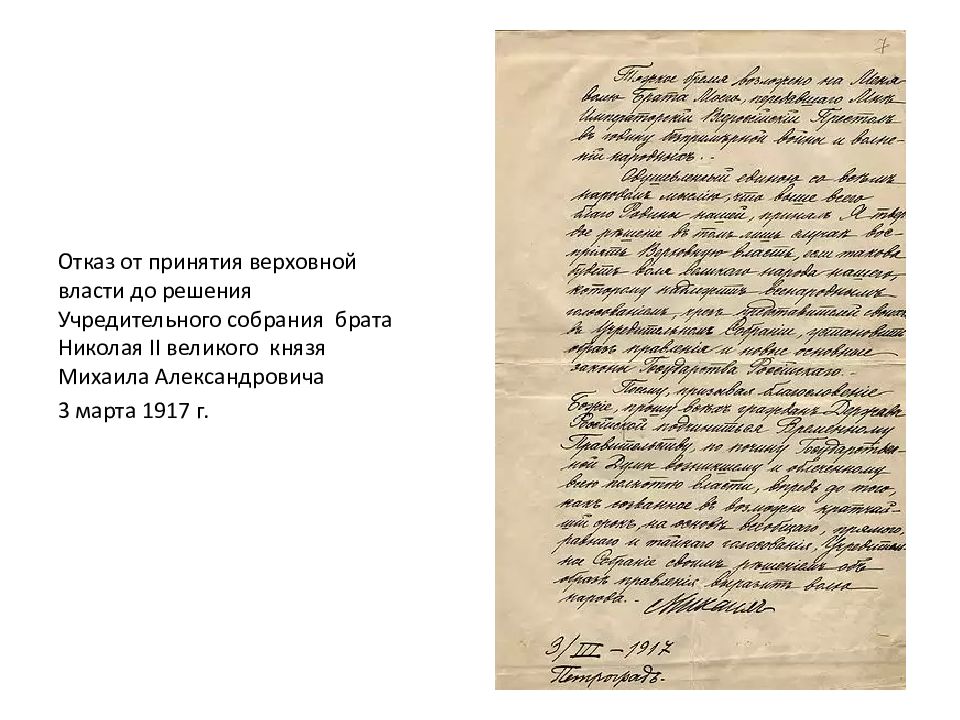 Отказ от принятия верховной
власти до решения
Учредительного собрания брата
Николая II великого князя
Михаила Александровича
3 марта 1917 г.
7
Тяжкое бремя возложено на Меня
волею Брата Моего, передавшаго Мнѣ
Императорскій Всероссійскій Престолъ
въ годину безпримѣрной войны и волне-
ній народныхъ.
Одушевленный единою со всѣмъ
народомъ мыслію, что выше всего
благо Родины нашей, принялъ Я твер-
дое рѣшеніе въ томъ лишь случаѣ вос-
пріять Верховную власть, если такова
будетъ воля великаго народа нашего,
которому надлежитъ всенароднымъ
голосованіемъ, чрезъ представителей своихъ
въ Учредительномъ Собраніи, установить
образъ правленія и новые основные
законы Государства Россійскаго.
Посему, призывая благословеніе
Божіе, прошу всѣхъ гражданъ Державы
Россійской подчиниться Временному
Правительству, по почину Государствен-
ной Думы возникшему и облеченному
всею полнотою власти, впредь до того,
какъ созванное въ возможно кратчай-
шій срокъ на основѣ всеобщаго, прямого,
равнаго и тайнаго голосованія, Учредитель-
ное Собраніе своимъ рѣшеніемъ объ
образѣ правленія выразитъ волю
народа.
Михаилъ
3/III – 1917
Петроградъ.